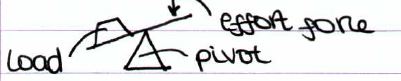 effort force
load
pivot